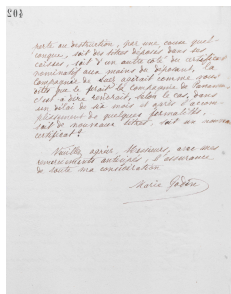 402
perte ou destruction, par une cause quel-
conque, soit des titres déposés dans ses
caisses, soit d'un autre côté du certificat
nominatif aux mains du déposant, la
Compagnie de Suez opérait comme vous
dites que le fait la Compagnie de Panama,
c'est à dire rendrait, selon le cas, dans
un délai de six mois et après l'accom-
plissement de quelques formalités,
soit de nouveaux titres, soit un nouveau
certificat?
Veuillez agréer, Messieurs, avec mes
remerciements anticipés, l'assurance
de toute ma considération
Marie Godon